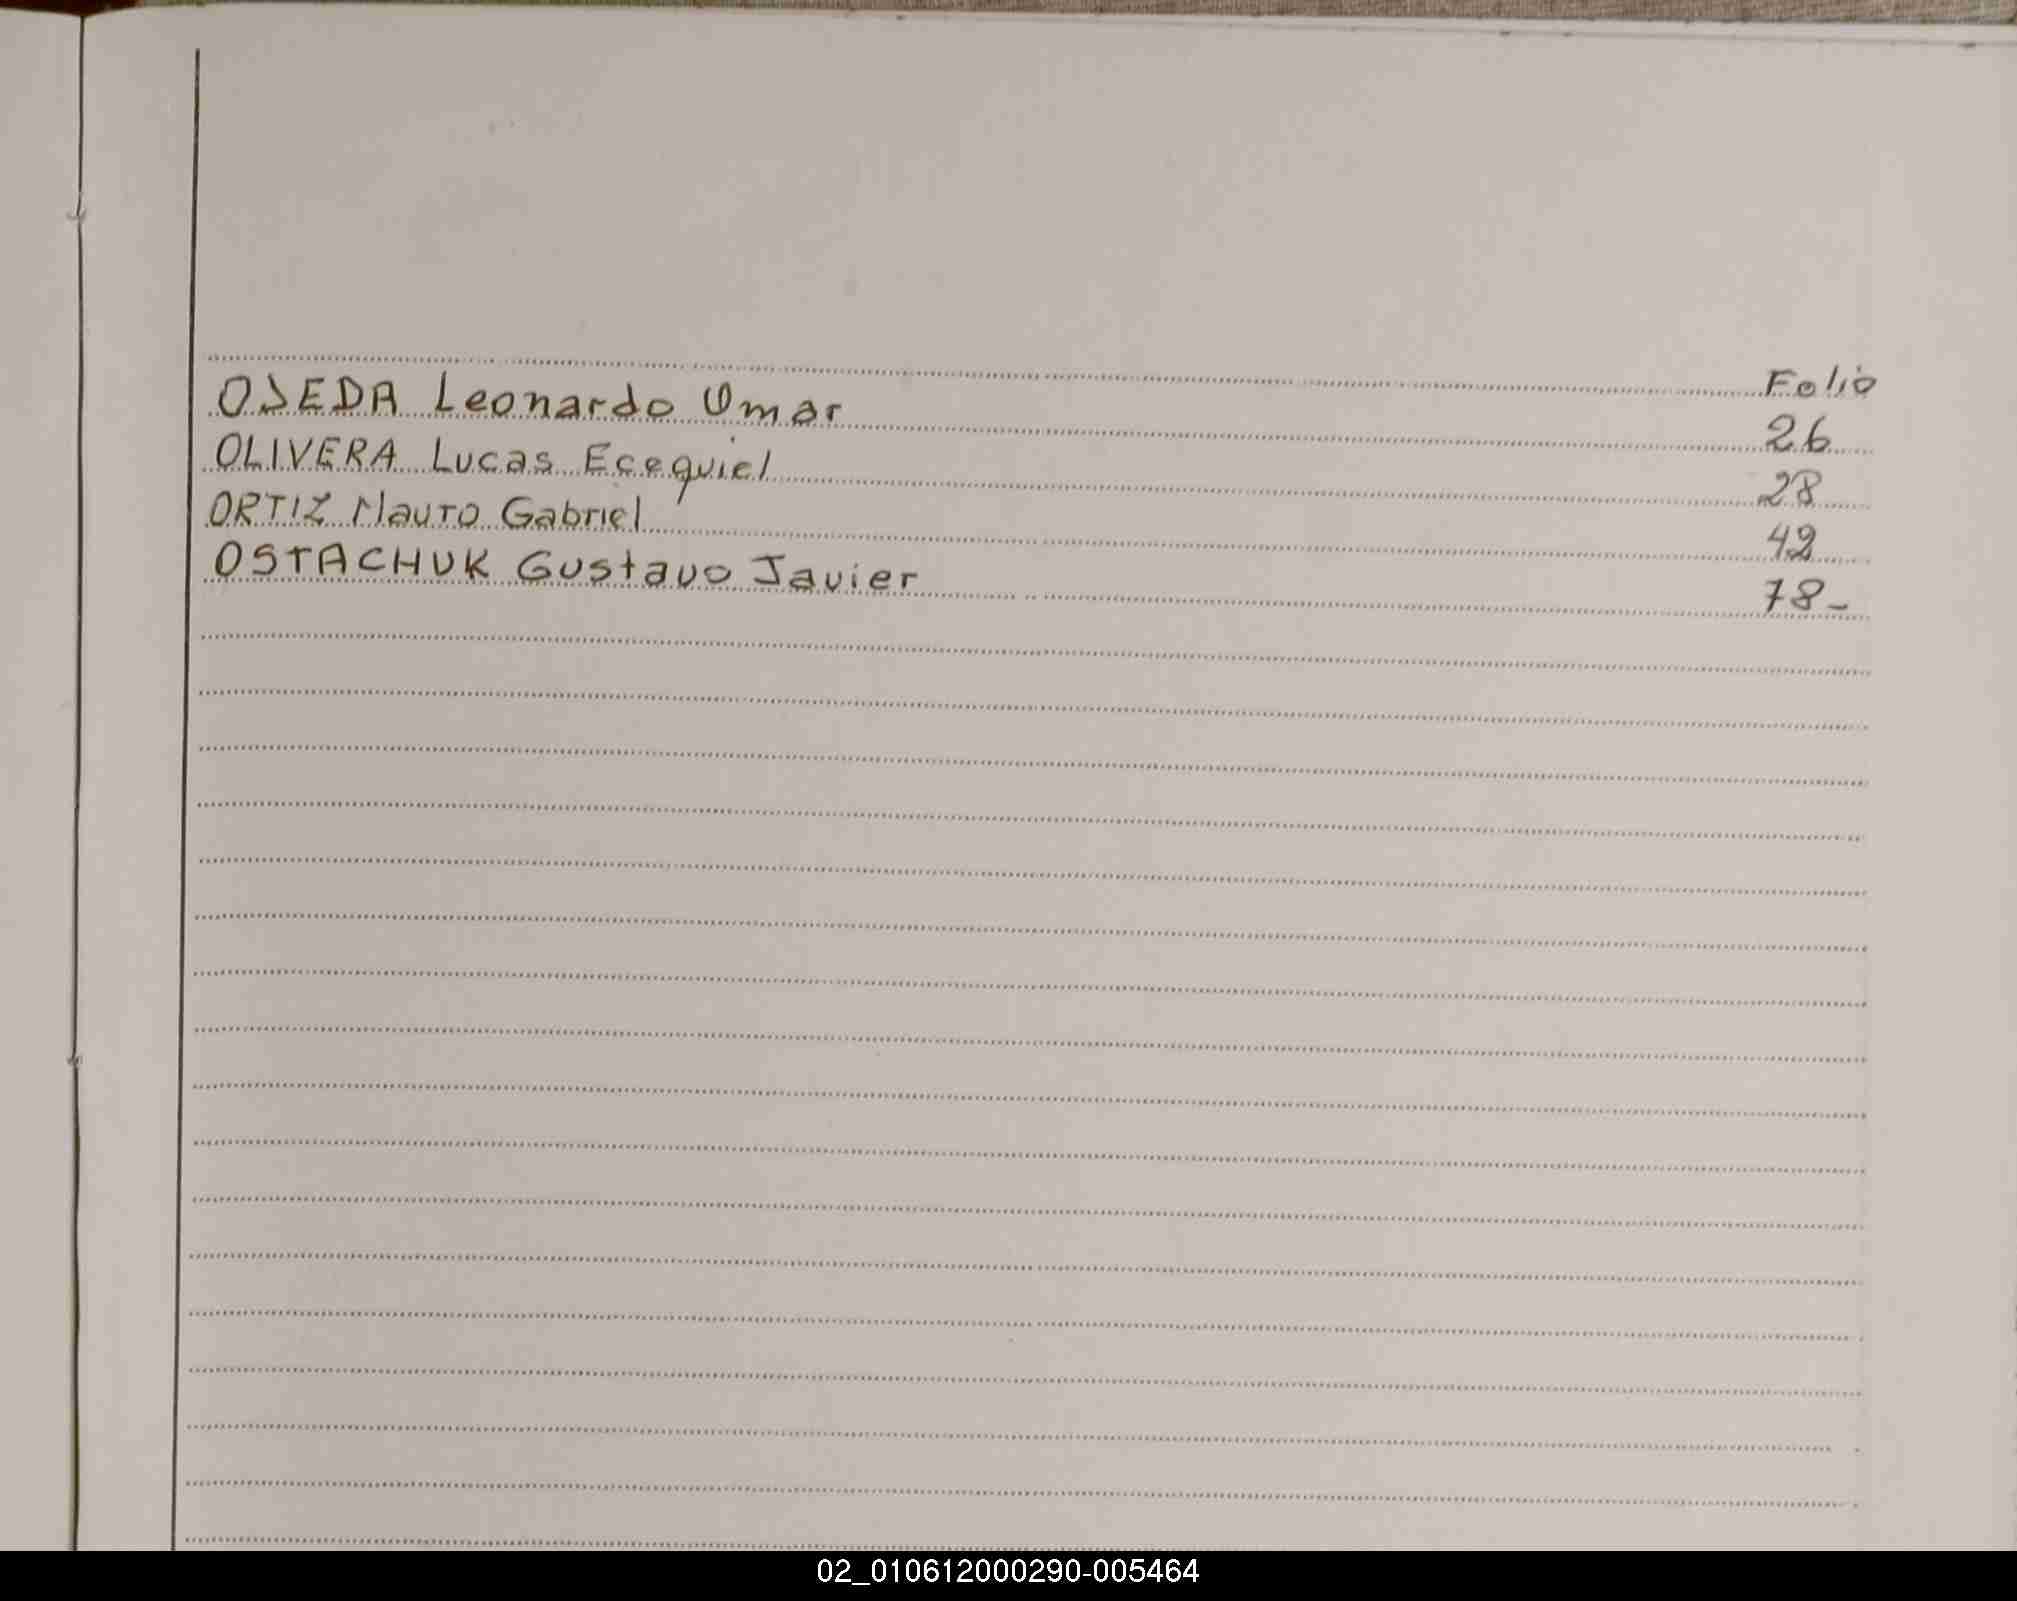 Folio
OJEDA Leonardo Omar 26
OLIVERA Lucas Ecequiel 28
ORTIZ Mauro Gabriel 42
OSTACHUK Gustavo Javier 78-
02_010612000290-005464